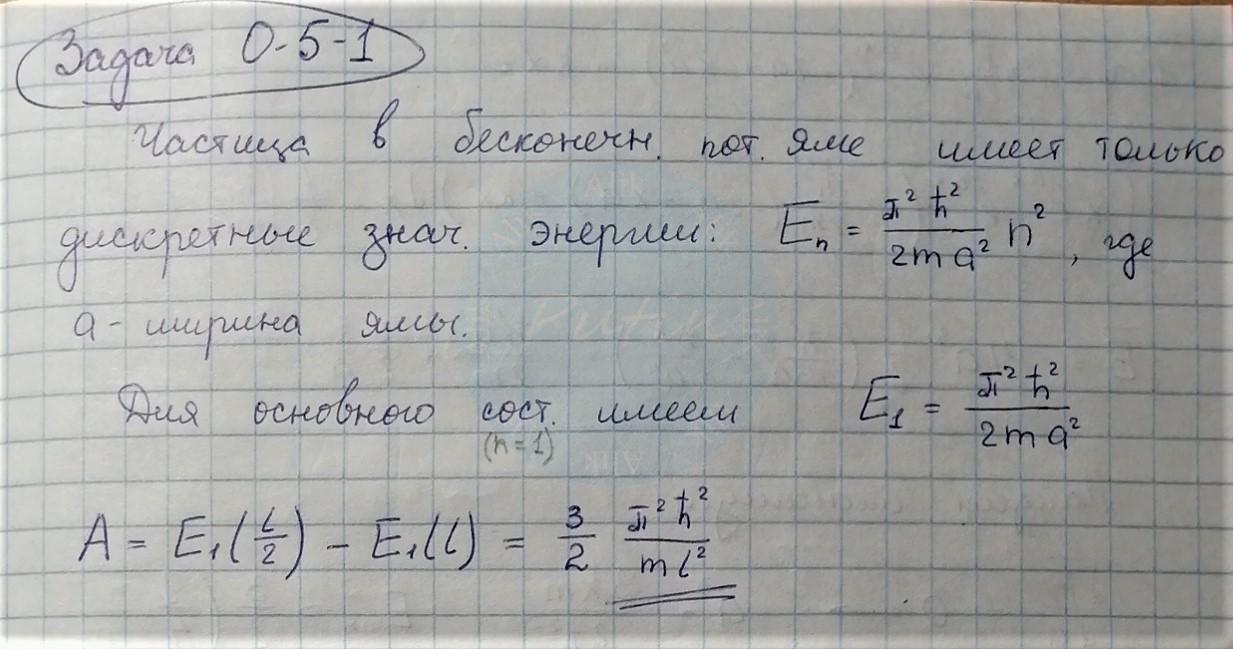 Задача 0-5-1
Частица в бесконечн. пот. яме имеет только
дискретные знач. энергии: Eₙ = π²ħ²/2ma² n², где
a - ширина ямы.
Для основного сост. имеем E₁ = π²ħ²/2ma²
(n=1)
A = E₁(l/2) - E₁(l) = 3/2 π²ħ²/ml²